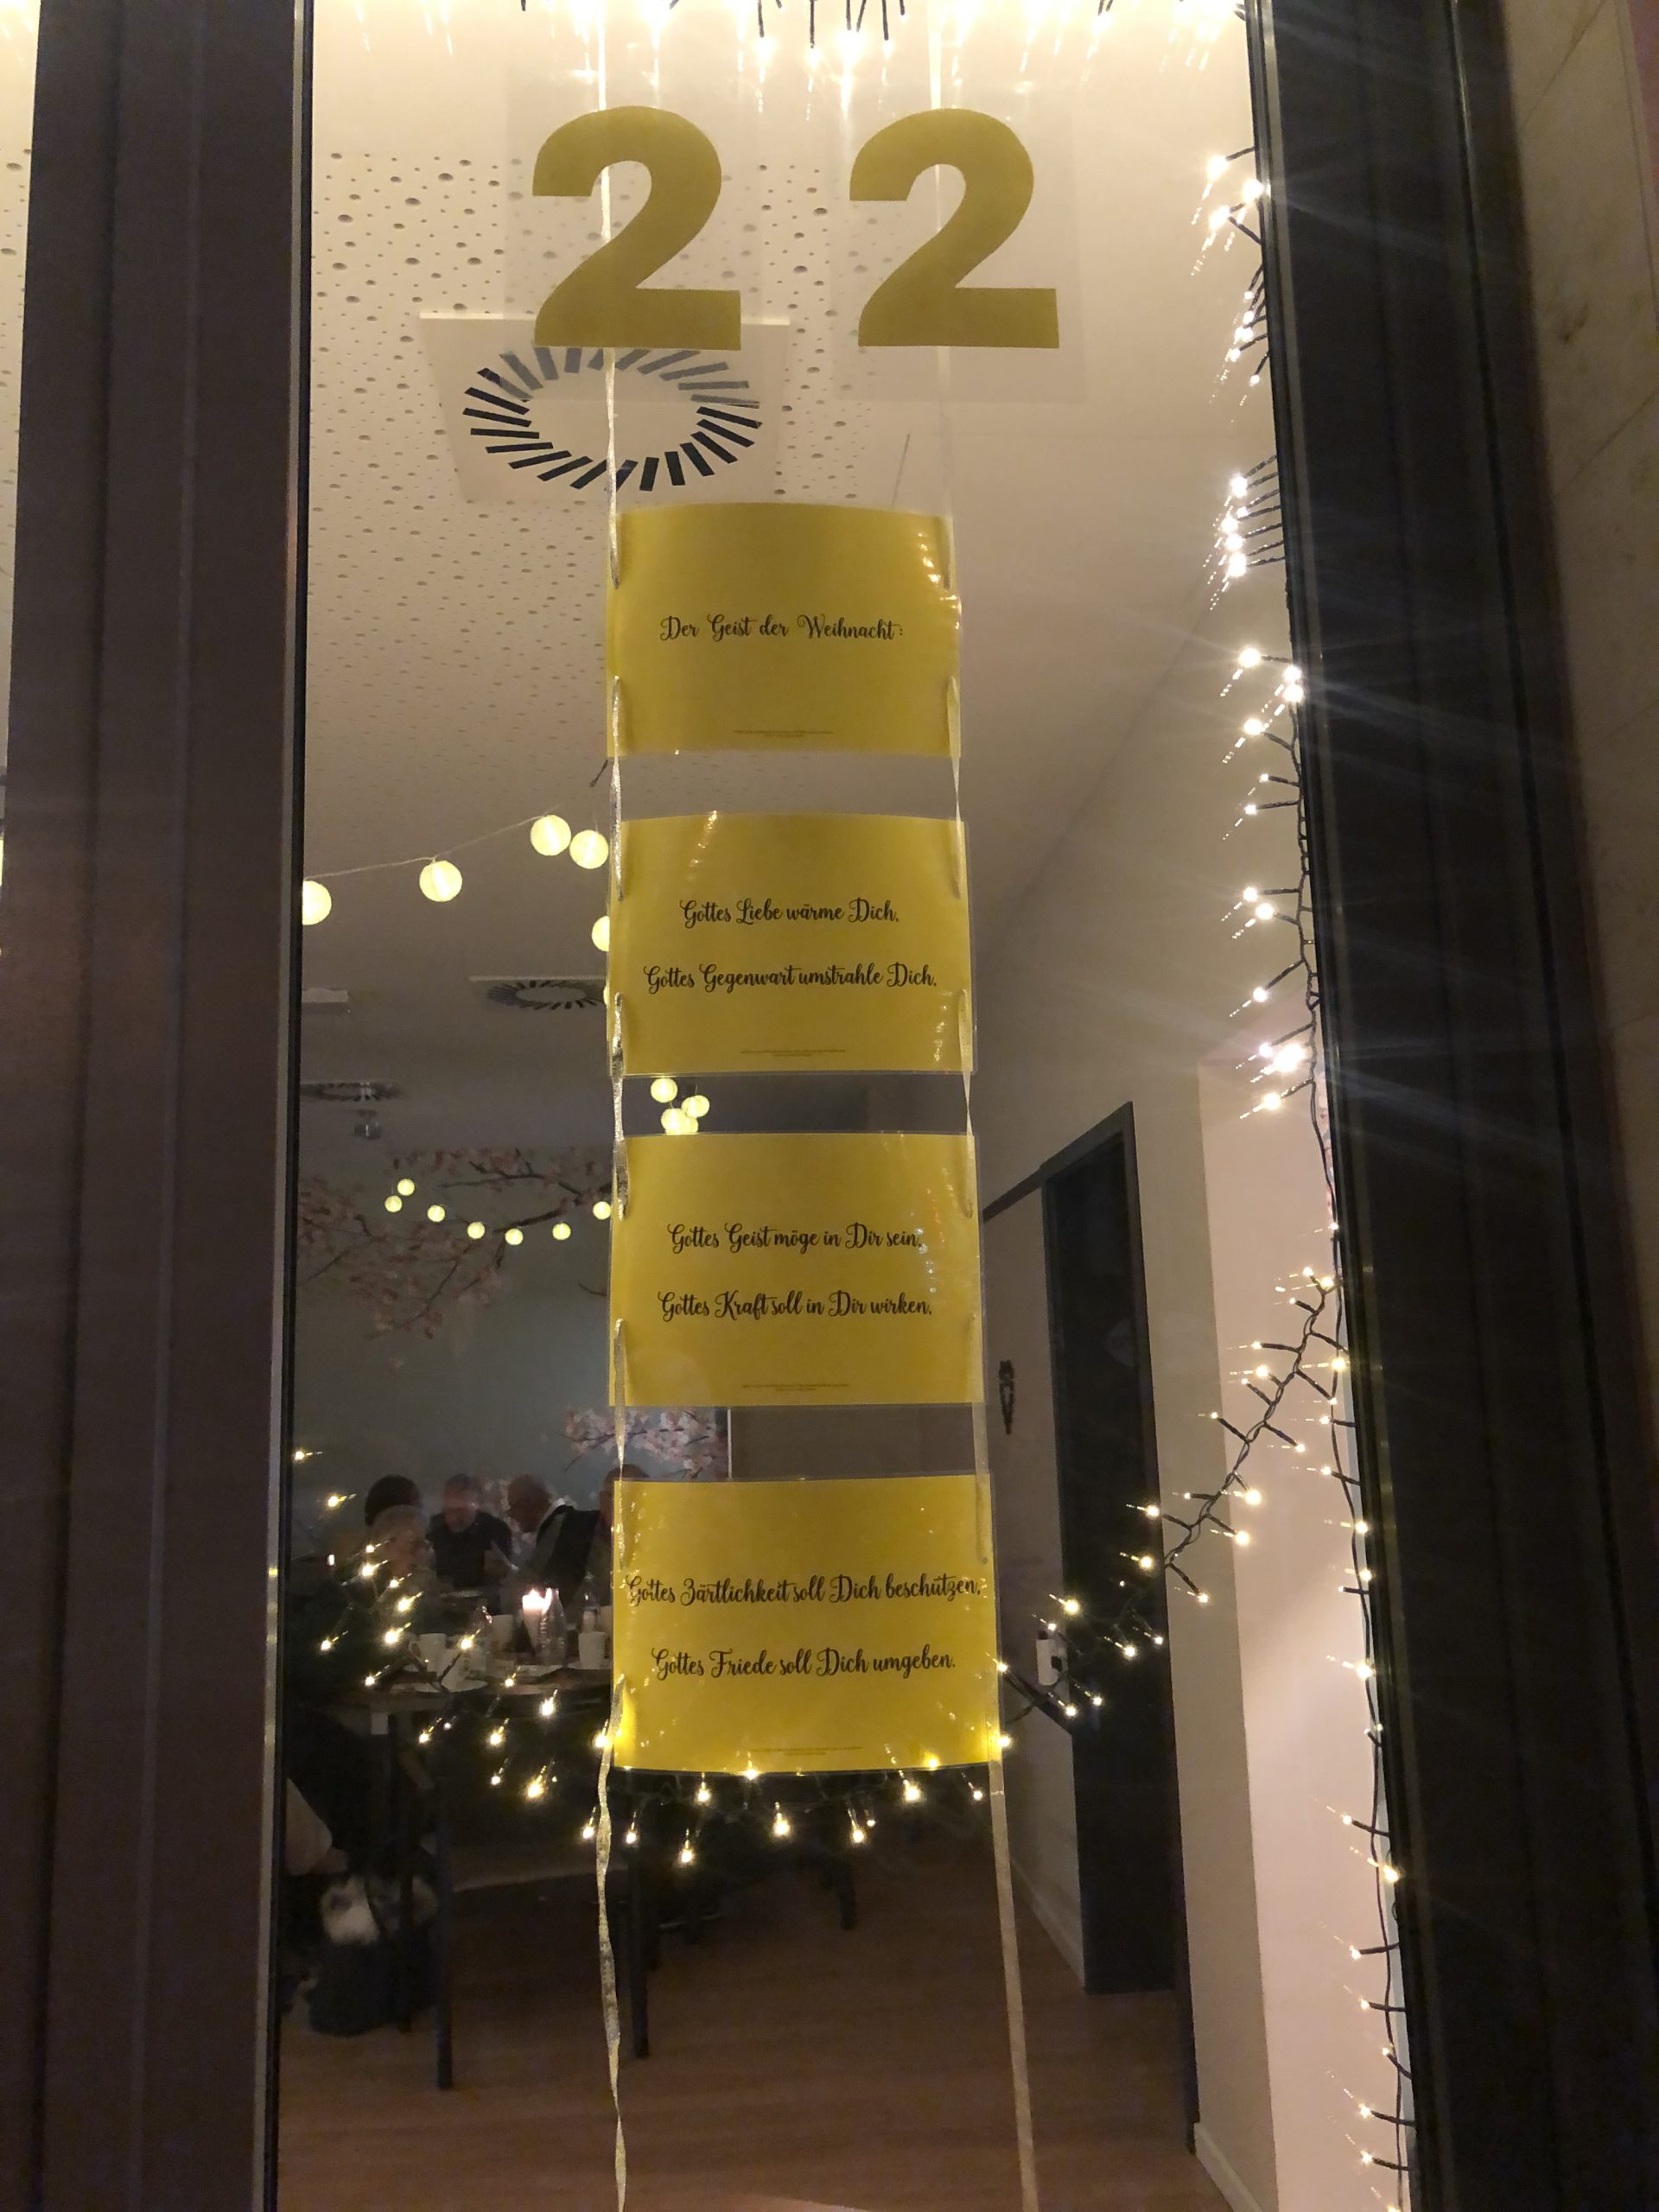 22
Der Geist der Weihnacht:
Gottes Liebe wärme Dich,
Gottes Gegenwart umstrahle Dich,
Gottes Geist möge in Dir sein,
Gottes Kraft soll in Dir wirken,
Gottes Zärtlichkeit soll Dich beschützen,
Gottes Friede soll Dich umgeben.